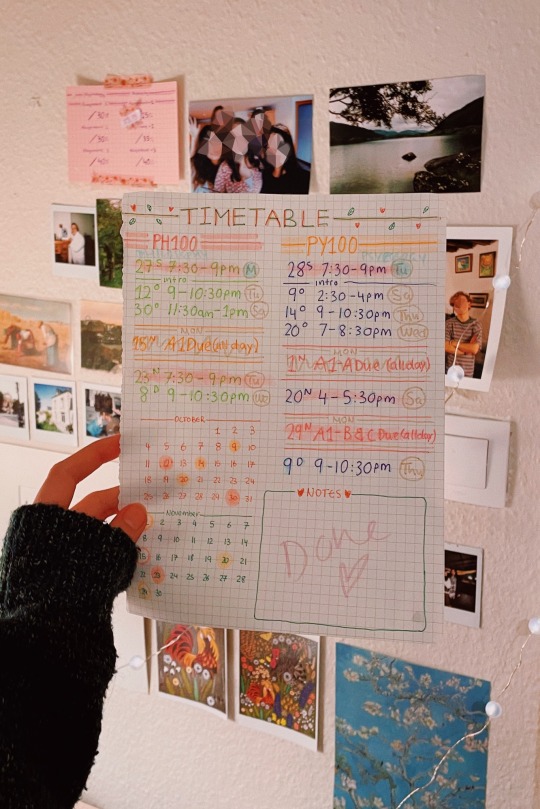 TIMETABLE
PH100
27ˢ 7:30-9pm M
intro
12⁰ 9-10:30pm Tu
30⁰ 11:30am-1pm Sa
MON
15ᴺ A1 Due (all day)
23ᴺ 7:30-9pm Tu
8ᴰ 9-10:30pm We
OCTOBER
1 2 3
4 5 6 7 8 9 10
11 12 13 14 15 16 17
18 19 20 21 22 23 24
25 26 27 28 29 30 31
November
1 2 3 4 5 6 7
8 9 10 11 12 13 14
15 16 17 18 19 20 21
22 23 24 25 26 27 28
29 30
PY100
28ˢ 7:30-9pm Tu
intro
9⁰ 2:30-4pm Sa
14⁰ 9-10:30pm Thu
20⁰ 7-8:30pm Wed
MON
1ᴺ A1-A Due (all day)
20ᴺ 4-5:30pm Sa
MON
29ᴺ A1-B&C Due (all day)
9ᴰ 9-10:30pm Thu
NOTES
Done